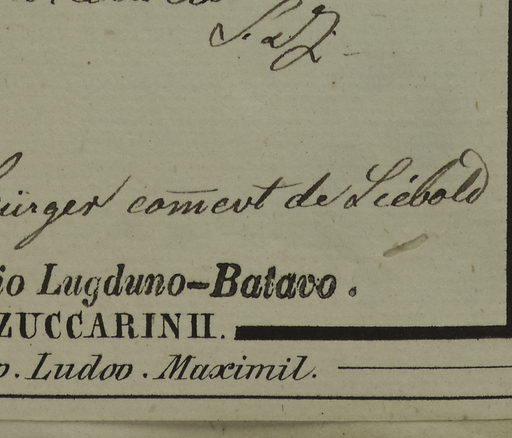 S. & Z.
ürger com̅evt de Siébold
io Lugduno-Batavo.
ZUCCARINII.
p. Ludov. Maximil.